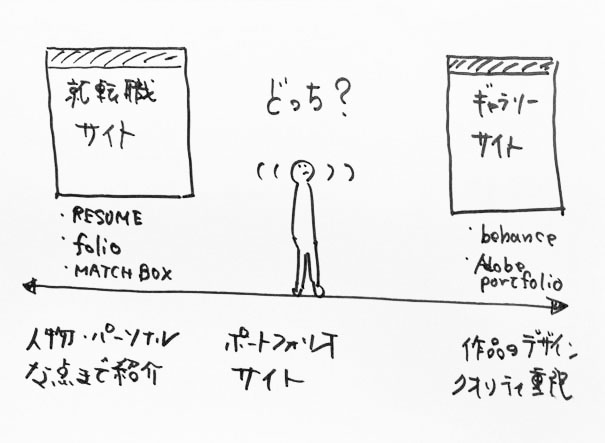 就転職
サイト
どっち？
ギャラリー
サイト
・RESUME
・folio
・MATCH BOX
・behance
・Adobe
portfolio
人物・パーソナル
な点まで紹介
ポートフォリオ
サイト
作品のデザイン
クオリティ重視